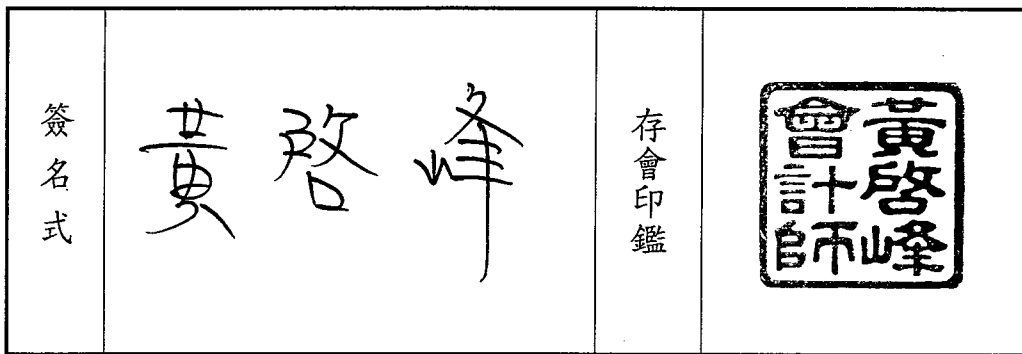 簽名式
黃啓峰
存會印鑑
黃啓峰
會計師